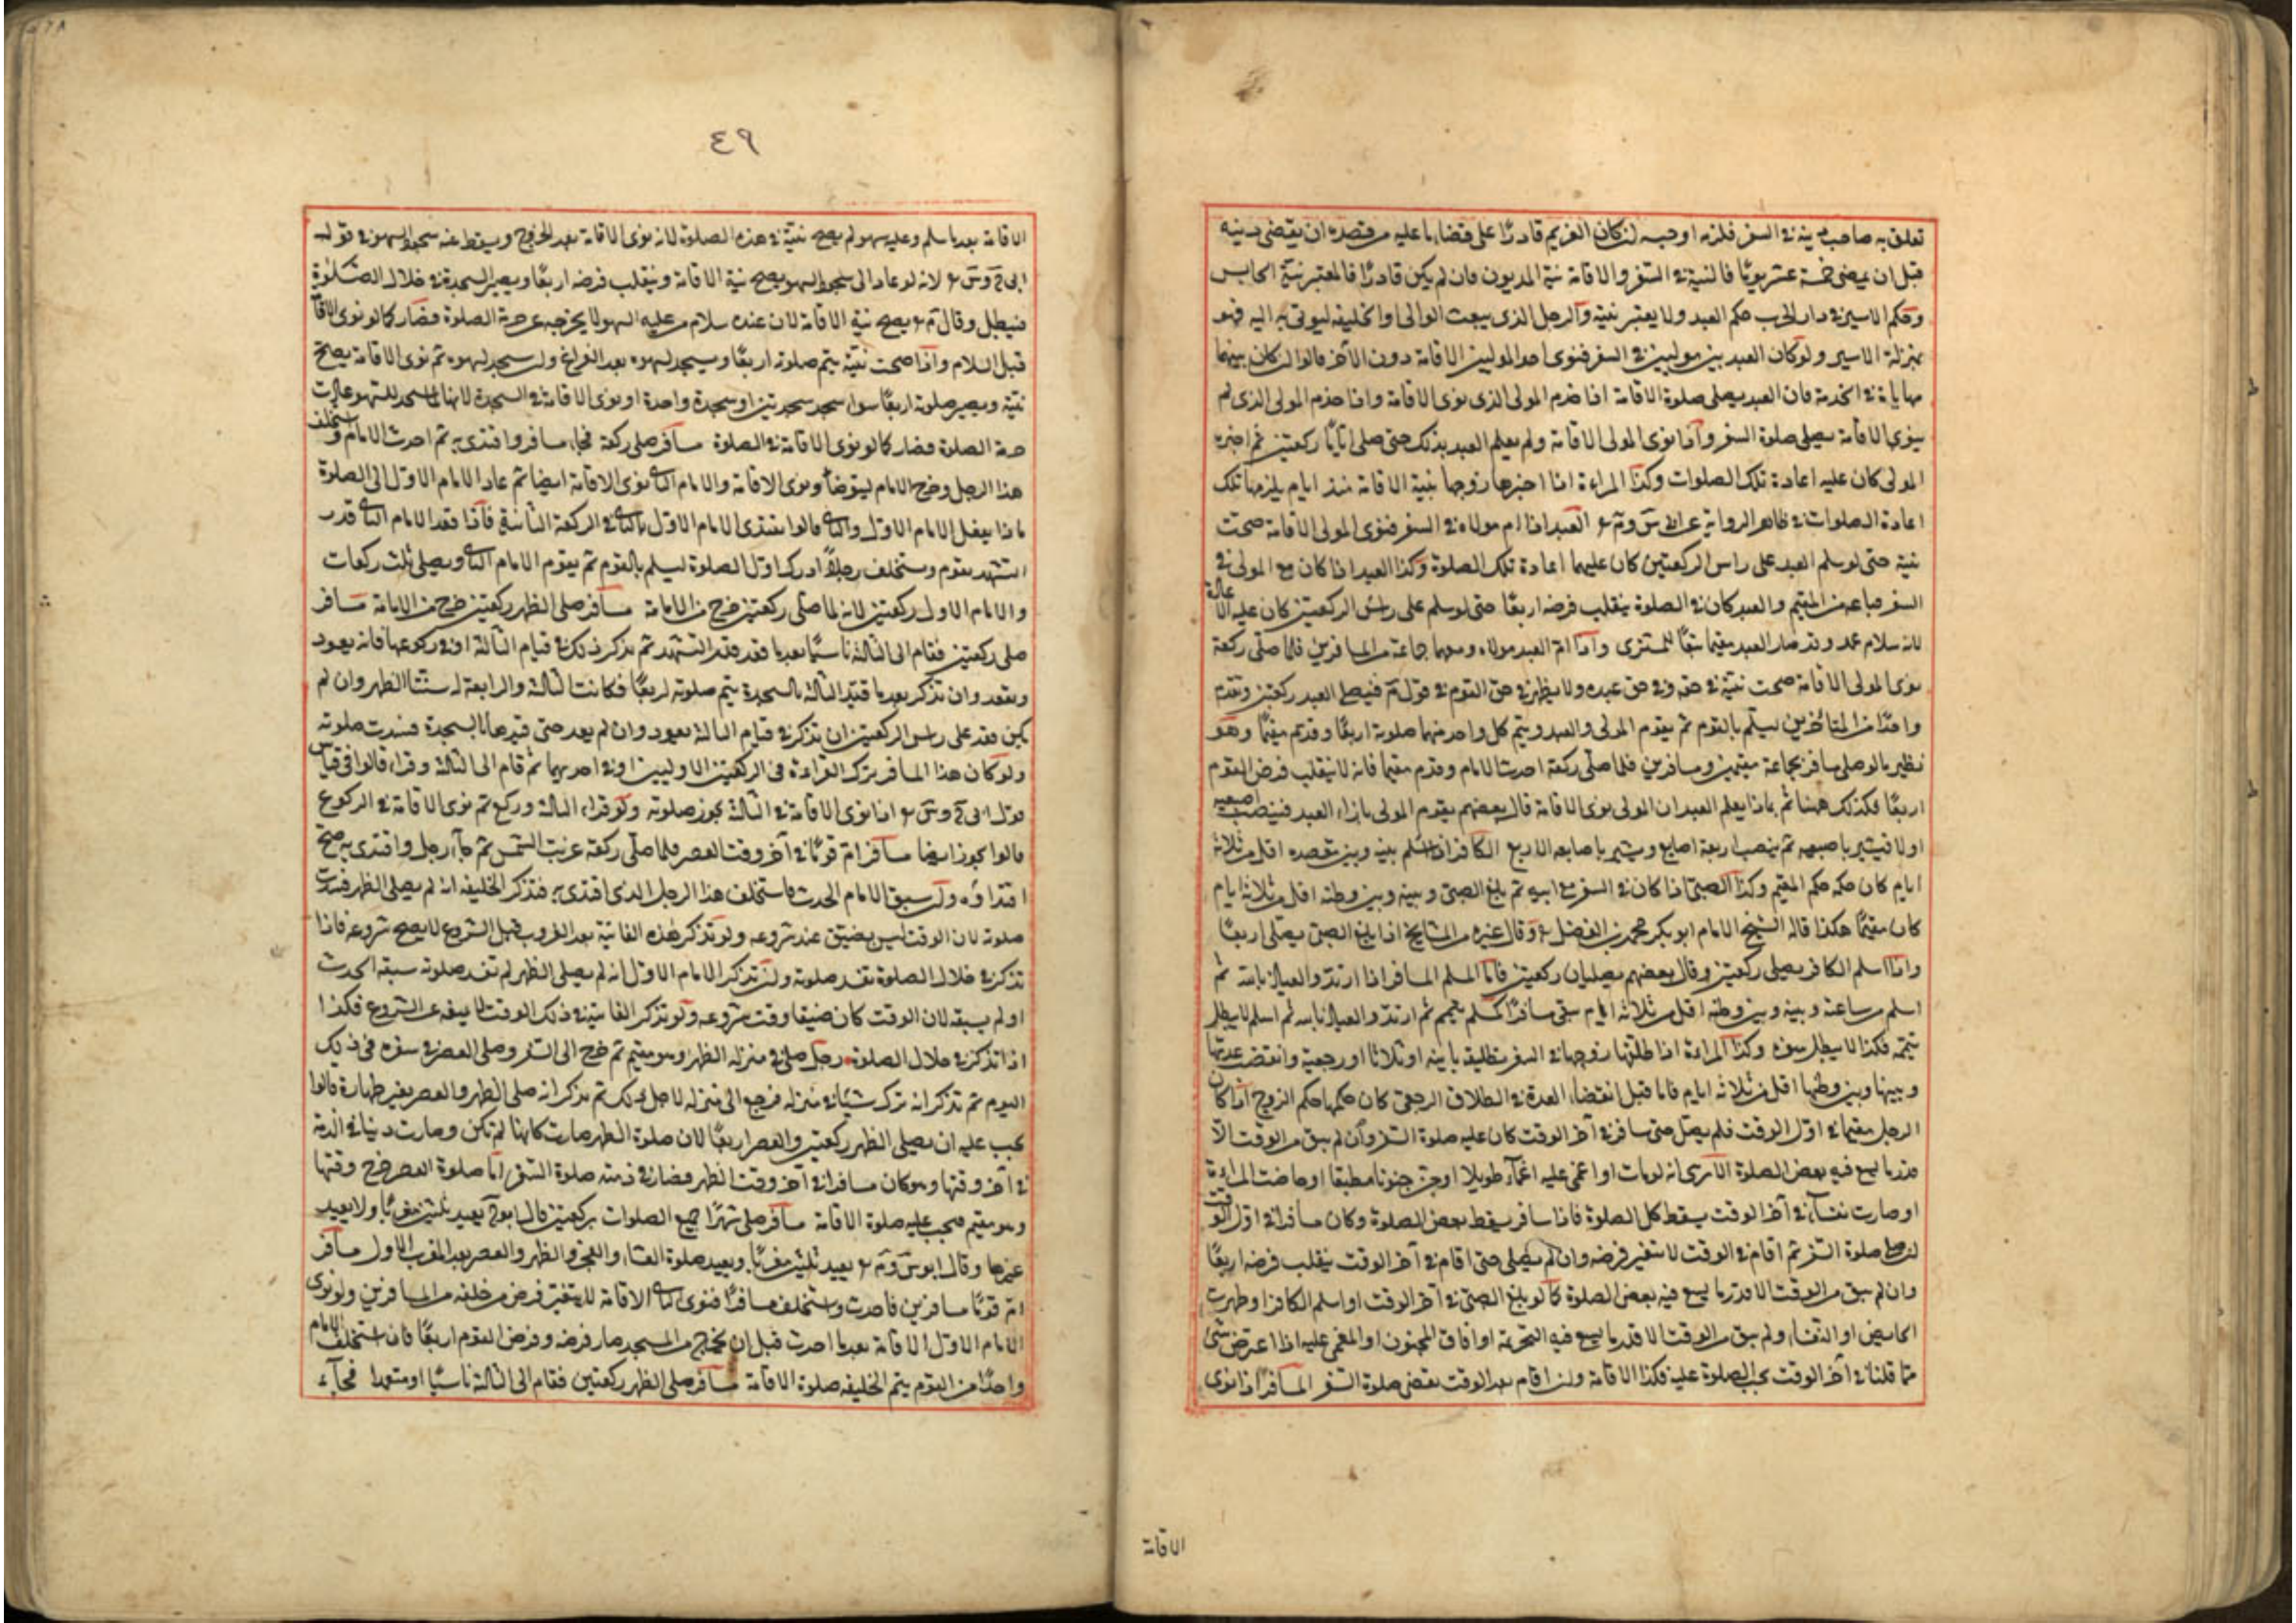 تعلق به صاحب دينه في السفر فلزمه او حبسه ان كان الغريم قادرًا على قضاء ما عليه من قصده ان يقضي دينه
قبل ان يمضي خمسة عشر يومًا فالنية في السفر والاقامة نية المديون فان لم يكن قادرًا فالمعتبر نية الحابس
وحكم الاسير في دار الحرب حكم العبد ولا يعتبر نيته والرجل الذي يبعث الوالي او الخليفة ليوتى به اليه فهو
بمنزلة الاسير ولو كان العبد بين موليين في السفر فنوى احد الموليين الاقامة دون الآخر قالوا ان كان بينهما
مهاياة في الخدمة فان العبد يصلي صلوة الاقامة اذا خدم المولى الذي نوى الاقامة واذا خدم المولى الذي لم
ينوي الاقامة يصلي صلوة السفر واذا نوى المولى الاقامة ولم يعلم العبد بذلك حتى صلى ايامًا ركعتين ثم اخبره
المولى كان عليه اعادة تلك الصلوات وكذا المراءة اذا اخبرها زوجها بنية الاقامة منذ ايام يلزمها تلك
اعادة الصلوات في ظاهر الرواية العبد اذا ام مولاه في السفر فنوى المولى الاقامة صحت
نيته حتى لو سلم العبد على راس الركعتين كان عليهما اعادة تلك الصلوة وكذا العبد اذا كان مع المولى في
السفر فباعه من المقيم والعبد كان في الصلوة ينقلب فرضه اربعًا حتى لو سلم على راس الركعتين كان عليه الاعادة
لانه سلام عمد وقد صار العبد مقيما تبعًا للمشتري واذا ام العبد مولاه ومعهما جماعة من المسافرين فلما صلى ركعة
نوى المولى الاقامة صحت نيته في حقه وفي حق عبده ولا يظهر في حق القوم في قول م فيصلي العبد ركعتين ويقدم
واحدًا من المسافرين ليسلم بالقوم ثم يقوم المولى والعبد ويتم كل واحد منهما صلوته اربعًا وهو
نظير ما لو صلى مسافر بجماعة مقيمين ومسافرين فلما صلى ركعة احدث الامام وقدم مقيما فانه لا ينقلب فرض القوم
اربعًا فكذلك ههنا ثم بماذا يعلم العبد ان المولى نوى الاقامة قال بعضهم يقوم المولى بازاء العبد فينصب اصبعيه
اولا فيشير باصبعه ثم ينصب اربعة اصابع ويشير باصابعه الاربع الكافر اذا اسلم بينه وبين مقصده اقل من ثلاثة
ايام كان حكمه حكم المقيم وكذا الصبي اذا كان في السفر مع ابيه ثم بلغ الصبي وبينه وبين وطنه اقل من ثلاثة ايام
كان مقيمًا هكذا قاله الشيخ الامام ابو بكر محمد بن الفضل وقال غيره من المشايخ اذا بلغ الصبي يصلي اربعًا
واذا اسلم الكافر يصلي ركعتين وقال بعضهم يصليان ركعتين فاما المسلم المسافر اذا ارتد والعياذ بالله ثم
اسلم من ساعته وبينه وبين وطنه اقل من ثلاثة ايام بقي مسافرًا كمسلم تيمم ثم ارتد والعياذ بالله ثم اسلم لا يبطل
تيممه فكذا لا يبطل سفره وكذا المراءة اذا طلقها زوجها في السفر تطليقة باينة او ثلاثا او رجعية وانقضت عدتها
وبينها وبين وطنها اقل من ثلاثة ايام فاما قبل انقضاء العدة في الطلاق الرجعي كان حكمها حكم الزوج اذا كان
الرجل مقيما في اول الوقت فلم يصل حتى سافر في آخر الوقت كان عليه صلوة السفر وان لم يبق من الوقت الا
قدر ما يسع فيه بعض الصلوة الا ترى انه لو مات او اغمي عليه اغماء طويلا او جن جنونا مطبقا او حاضت المراءة
او صارت نفساء في آخر الوقت يسقط كل الصلوة فاذا سافر يسقط بعض الصلوة وكان مسافرا في اول الوقت
ان صلى صلوة السفر ثم اقام في الوقت لا يتغير فرضه وان لم يصلي حتى اقام في آخر الوقت ينقلب فرضه اربعًا
وان لم يبق من الوقت الا قدر ما يسع فيه بعض الصلوة كما لو بلغ الصبي في آخر الوقت او اسلم الكافر او طهرت
الحايض او النفساء ولم يبق من الوقت الا قدر ما يسع فيه التحريمة او افاق المجنون او المغمى عليه اذا اعترض شيئ
مما قلنا في آخر الوقت يجب الصلوة عليه فكذا الاقامة وان اقام بعد الوقت يقضي صلوة السفر المسافر اذا نوى
الاقامة
٤٩
الاقامة بعد ما سلم وعليه سهو لم يصح نيته في هذه الصلوة لانه نوى الاقامة بعد الخروج ويسقط عنه سجود السهو في قول
لانه لو عاد الى سجود السهو يصح نية الاقامة وينقلب فرضه اربعًا ويصير السجدة في خلال الصلوة
فيبطل وقال م يصح نية الاقامة لان عنده سلام من عليه السهو لا يخرجه عن حرمة الصلوة فصار كما لو نوى الاقامة
قبل السلام واذا صحت نيته يتم صلوته اربعًا ويسجد لسهوه بعد الفراغ وان سجد لسهوه ثم نوى الاقامة يصح
نيته ويصير صلوته اربعًا سواء سجد سجدتين او سجدة واحدة او نوى الاقامة في السجدة لانه لما سجد للسهو عادت
حرمة الصلوة فصار كما لو نوى الاقامة في الصلوة مسافر صلى ركعة فجاء مسافر واقتدى به ثم احدث الامام واستخلف
هذا الرجل وخرج الامام ليتوضأ ونوى الاقامة والامام الثاني نوى الاقامة ايضا ثم عاد الامام الاول الى الصلوة
ماذا يفعل الامام الاول والثاني قالوا يقتدي الامام الاول بالثاني في الركعة الثانية فاذا قعد الامام الثاني قدر
التشهد يقوم ويستخلف رجلًا ادرك اول الصلوة ليسلم بالقوم ثم يقوم الامام الثاني ويصلي ثلث ركعات
والامام الاول ركعتين لانه لما صلى ركعتين خرج من الامامة مسافر صلى الظهر ركعتين خرج من الامامة مسافر
صلى ركعتين فقام الى الثالثة ناسيًا بعد ما قعد قدر التشهد ثم تذكر ذلك في قيام الثالثة او في ركوعها فانه يعود
ويقعد وان تذكر بعد ما قيد الثالثة بالسجدة يتم صلوته اربعًا فكانت الثالثة والرابعة له سنة الظهر وان لم
يكن قعد على راس الركعتين ان تذكر في قيام الثالثة يعود وان لم يعد حتى قيدها بالسجدة فسدت صلوته
ولو كان هذا المسافر ترك القراءة في الركعتين الاوليين او في احديهما ثم قام الى الثالثة وقراء قالوا في قياس
قول اذا نوى الاقامة في الثالثة يجوز صلوته ولو قراء الثالثة وركع ثم نوى الاقامة في الركوع
قالوا يجوز ايضا مسافر ام قومًا في آخر وقت العصر فلما صلى ركعة غربت الشمس ثم جاء رجل واقتدى به صح
اقتداؤه وان سبق الامام الحدث فاستخلف هذا الرجل الذي اقتدى به فتذكر الخليفة انه لم يصلي الظهر فسدت
صلوته لان الوقت ليس بضيق عند شروعه ولو تذكر هذه الفائتة بعد الغروب قبل الشروع لا يصح شروعه فاذا
تذكر في خلال الصلوة تفسد صلوته وان تذكر الامام الاول انه لم يصلي الظهر لم تفسد صلوته سبقه الحدث
او لم يسبقه لان الوقت كان ضيقا وقت شروعه ولو تذكر الفائتة في ذلك الوقت لا يمنعه عن الشروع فكذا
اذا تذكر في خلال الصلوة رجل صلى في منزله الظهر وهو مقيم ثم خرج الى السفر وصلى العصر في سفره في ذلك
اليوم ثم تذكر انه ترك شيئا في منزله فرجع الى منزله لاجل ذلك ثم تذكر انه صلى الظهر والعصر بغير طهارة قالوا
يجب عليه ان يصلي الظهر ركعتين والعصر اربعًا لان صلوة الظهر صارت كانها لم تكن وصارت دينا في الذمة
في آخر وقتها وهو كان مسافرا في آخر وقت الظهر فصار في ذمته صلوة السفر اما صلوة العصر خرج وقتها
وهو مقيم فيجب عليه صلوة الاقامة مسافر صلى شهرًا جميع الصلوات ركعتين قال يعيد ثلثين مغربًا ولا يعيد
غيرها وقال يعيد ثلثين مغربًا ويعيد صلوة العشاء والفجر والظهر والعصر بعد المغرب الاول مسافر
ام قومًا مسافرين فاحدث واستخلف مسافرًا فنوى الثاني الاقامة لا يتغير فرض من خلفه من المسافرين ولو نوى
الامام الاول الاقامة بعد ما احدث قبل ان يخرج من المسجد صار فرضه وفرض القوم اربعًا فان استخلف الامام
واحدًا من القوم يتم الخليفة صلوة الاقامة مسافر صلى الظهر ركعتين فقام الى الثالثة ناسيًا او متعمدا فجآء